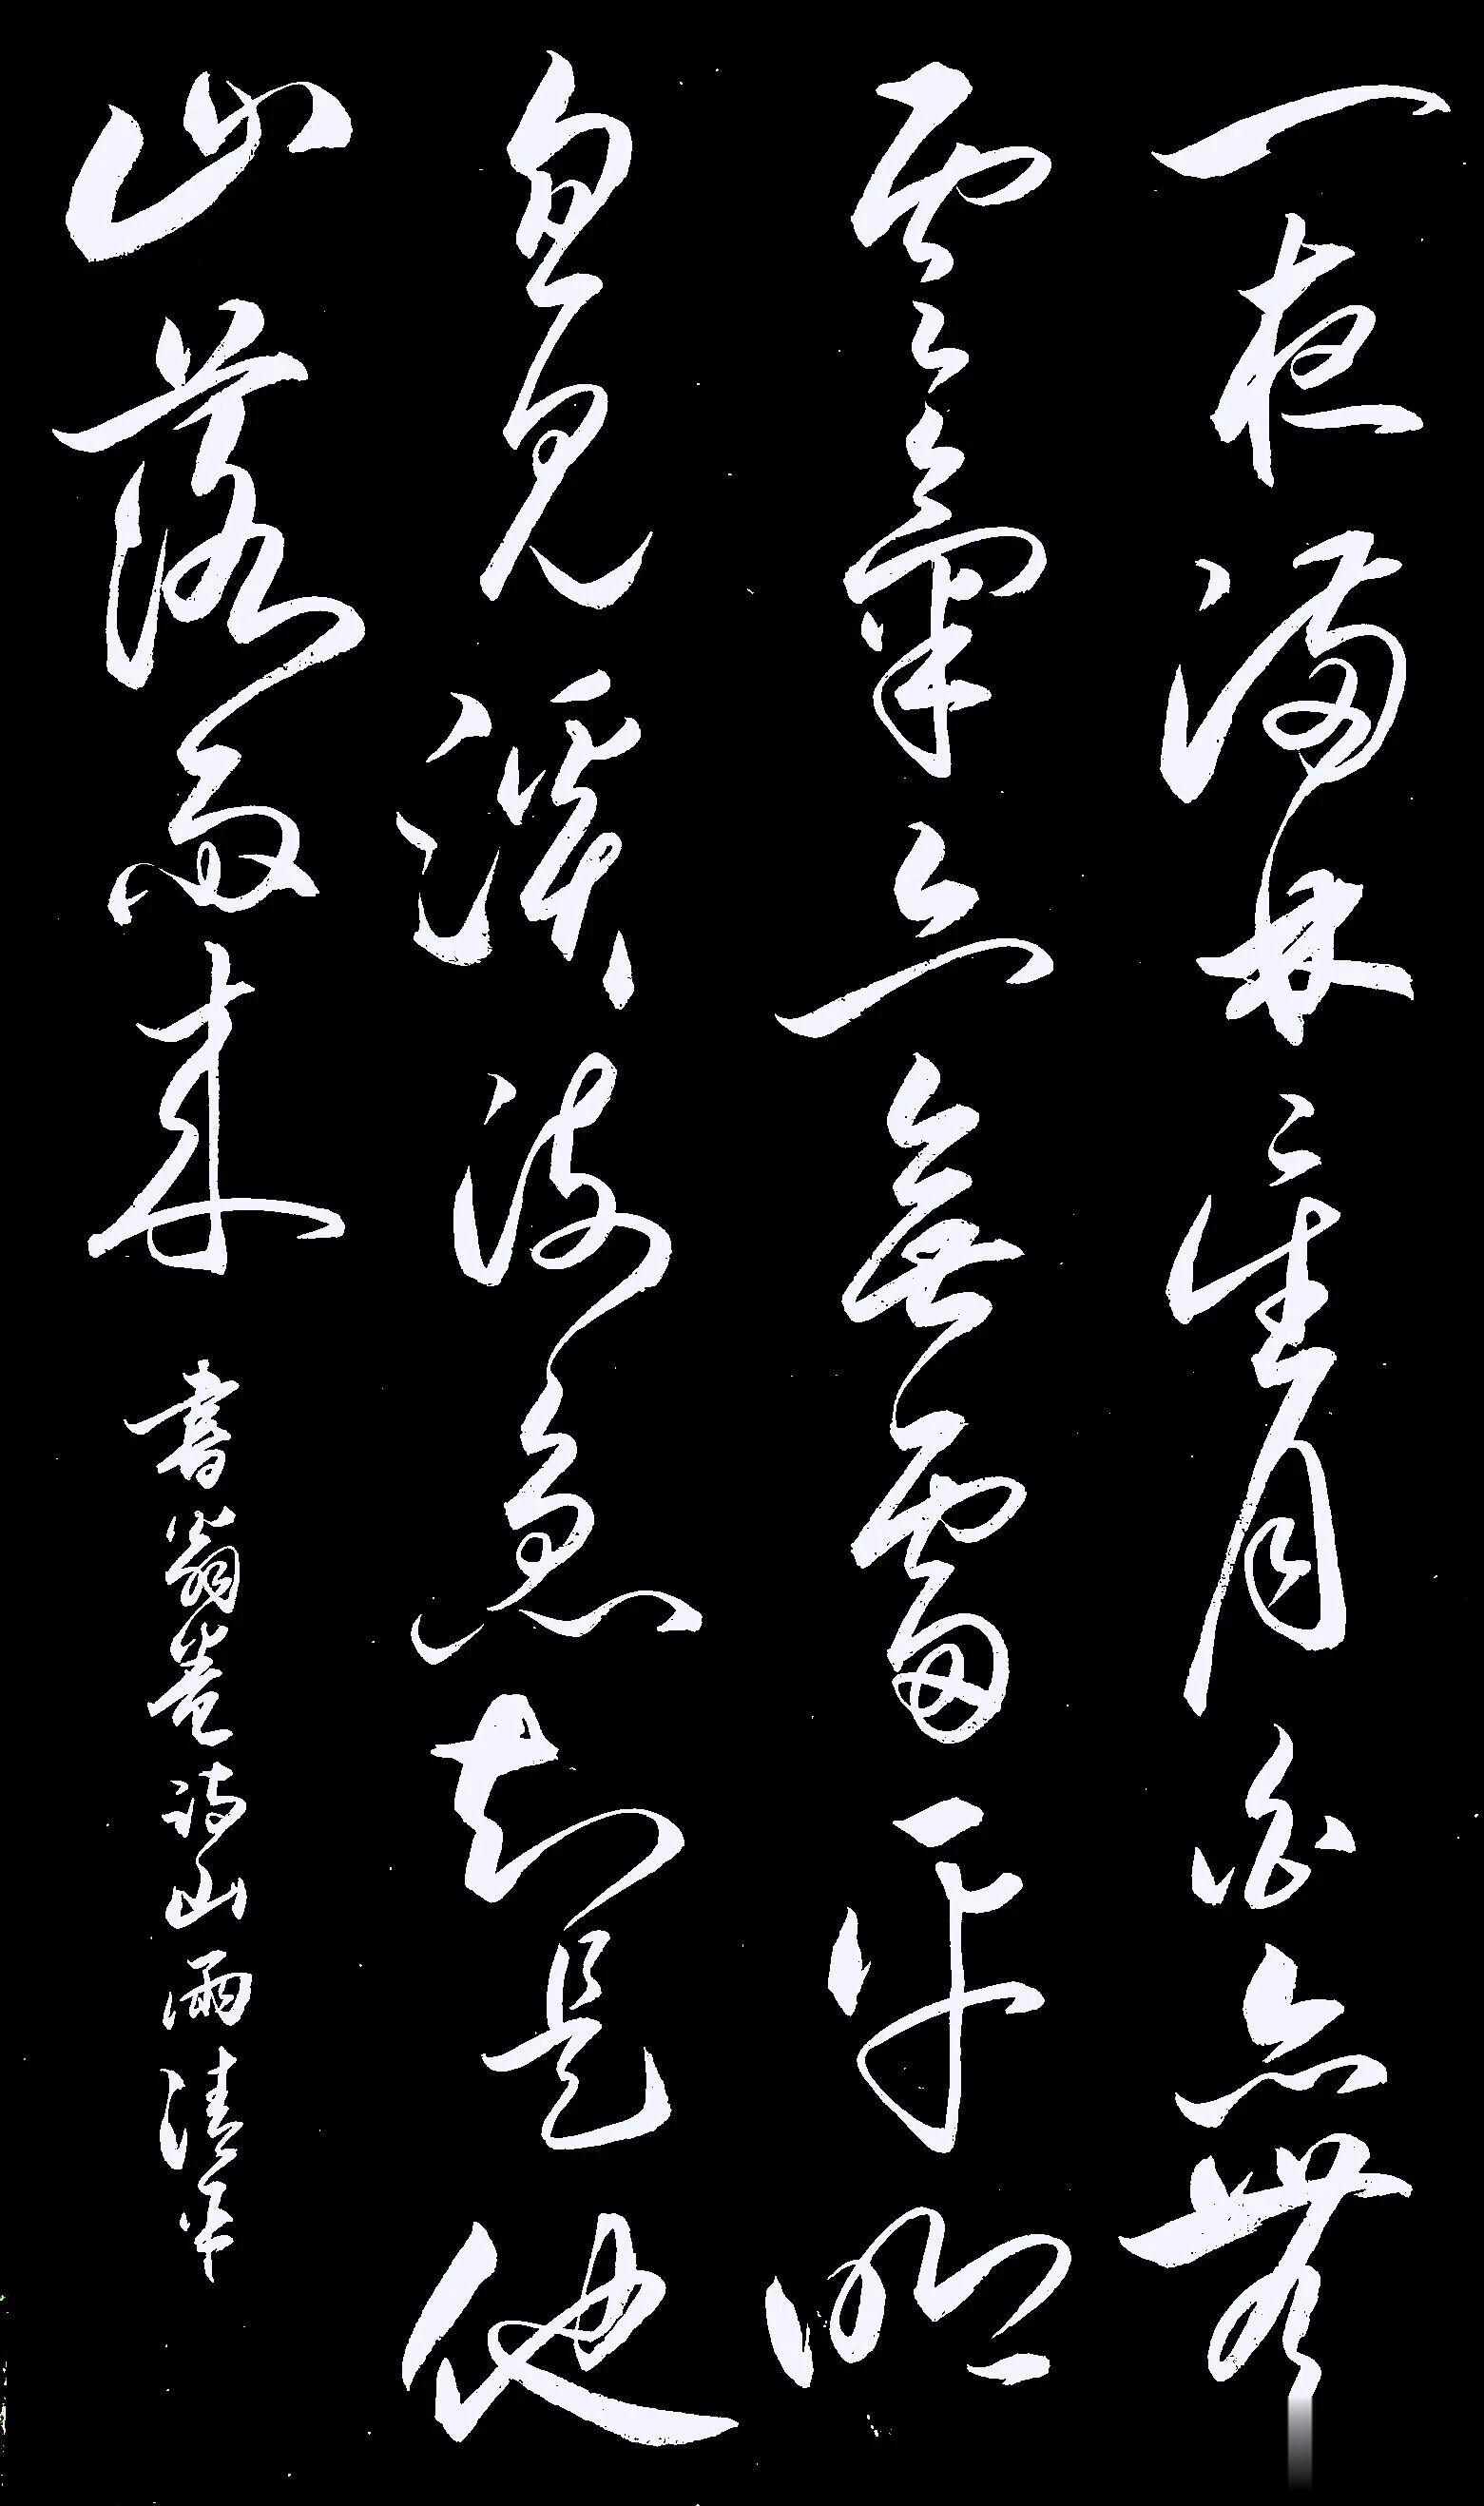 一夜滿林星月白亦無
雲氣亦無雷平明
忽見溪流急知是他
山落雨来 書翁卷詩山雨 清